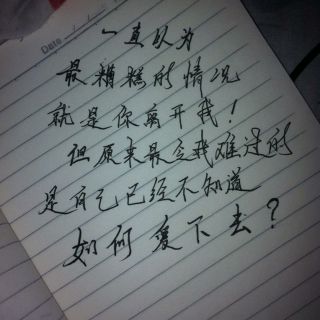 Date
一直认为
最糟糕的情况
就是你离开我!
但原来最令我难过的
是自己已经不知道
如何爱下去?